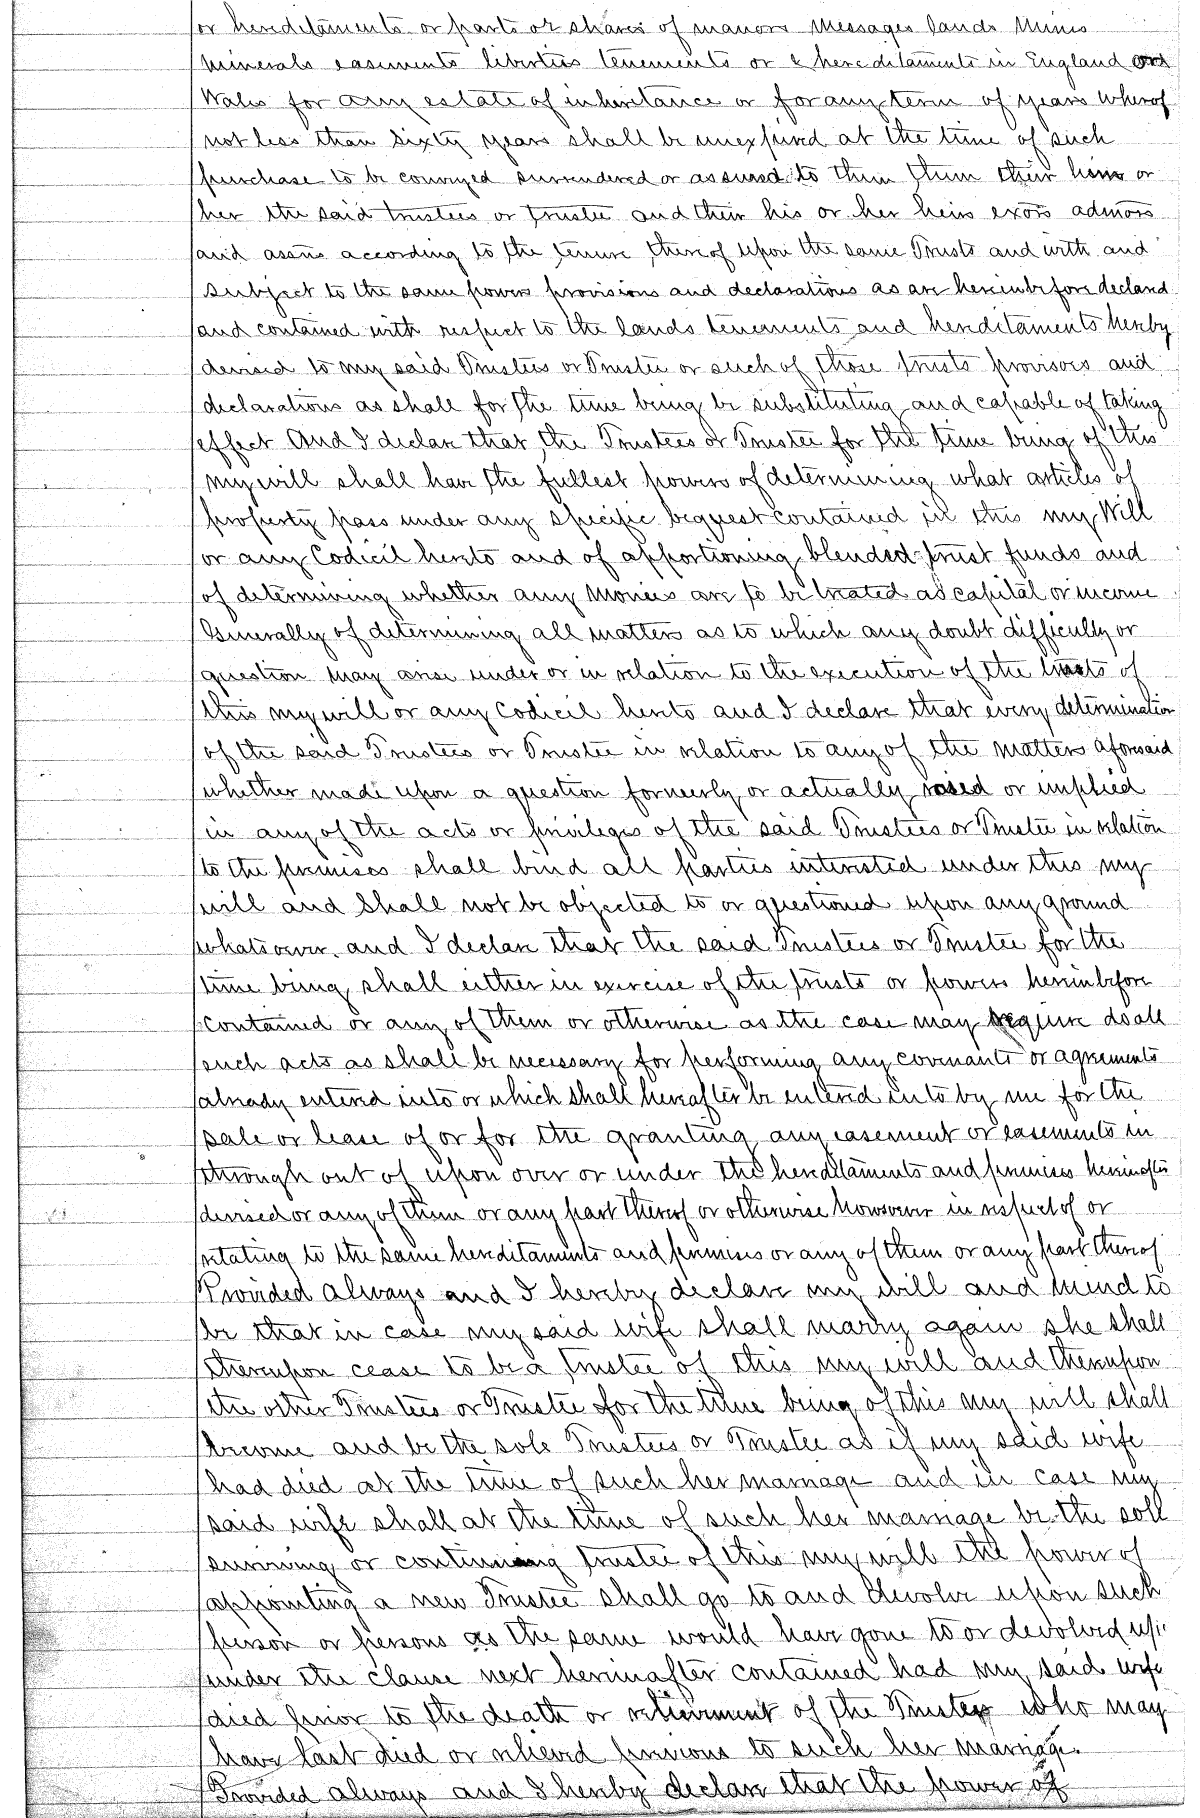 or hereditaments or parts or shares of manors Messages lands Mines
minerals easements liberties tenements or hereditaments in England and
Wales for any estate of inheritance or for any term of years whereof
not less than sixty years shall be unexpired at the time of such
purchase to be conveyed surrendered or assured to them their heirs or
her the said trustees or trustee and their his or her heirs exors admors
and assns according to the tenure thereof upon the same Trusts and with and
subject to the same powers provisions and declarations as are hereinbefore declared
and contained with respect to the lands tenements and hereditaments hereby
devised to my said Trustees or Trustee or such of those trusts provisoes and
declarations as shall for the time being be substituting and capable of taking
effect And I declare that the Trustees or Trustee for the time being of this
my will shall have the fullest powers of determining what articles of
property pass under any specific bequest contained in this my Will
or any Codicil hereto and of apportioning blended trust funds and
of determining whether any Monies are to be treated as capital or income
Generally of determining all matters as to which any doubt difficulty or
question may arise under or in relation to the execution of the trusts of
this my will or any Codicil hereto and I declare that every determination
of the said Trustees or Trustee in relation to any of the matters aforesaid
whether made upon a question formerly or actually raised or implied
in any of the acts or privileges of the said Trustees or Trustee in relation
to the premises shall bind all parties interested under this my
will and shall not be objected to or questioned upon any ground
whatsoever. and I declare that the said Trustees or Trustee for the
time being shall either in exercise of the trusts or powers hereinbefore
contained or any of them or otherwise as the case may require do all
such acts as shall be necessary for performing any covenants or agreements
already entered into or which shall hereafter be entered into by me for the
sale or lease of or for the granting any easement or easements in
through out of upon over or under the hereditaments and premises hereinafter
devised or any of them or any part thereof or otherwise howsoever in respect of or
relating to the same hereditaments and premises or any of them or any part thereof
Provided always and I hereby declare my will and mind to
be that in case my said wife shall marry again she shall
thereupon cease to be a trustee of this my will and thereupon
the other Trustees or Trustee for the time being of this my will shall
become and be the sole Trustees or Trustee as if my said wife
had died at the time of such her marriage and in case my
said wife shall at the time of such her marriage be the sole
surviving or continuing trustee of this my will the power of
appointing a new Trustee shall go to and devolve upon such
person or persons as the same would have gone to or devolved upon
under the clause next hereinafter contained had my said wife
died prior to the death or retirement of the Trustee who may
have last died or retired previous to such her marriage.
Provided always and I hereby declare that the power of